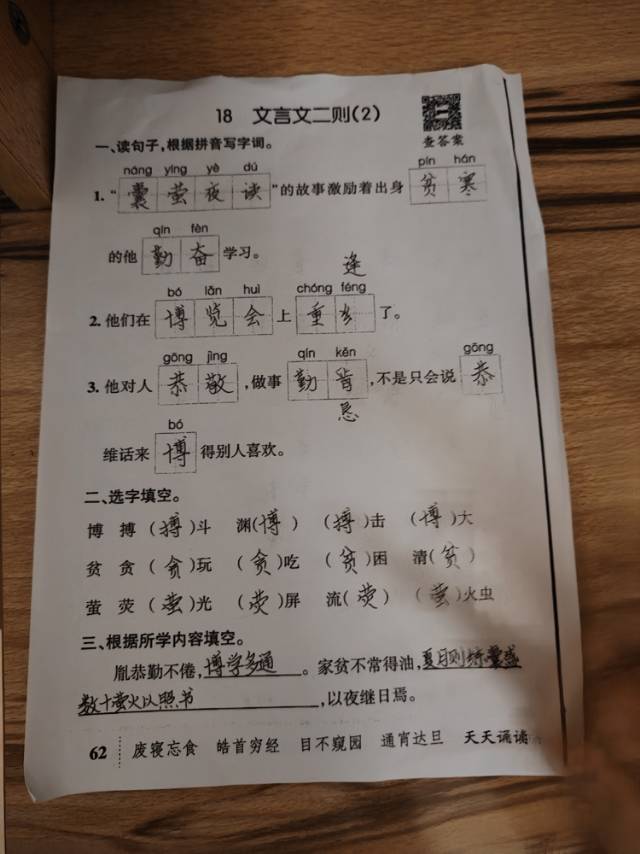 18 文言文二则(2)
查答案
一、读句子,根据拼音写字词。
náng yíng yè dú pín hán
1. “囊萤夜读”的故事激励着出身贫寒
qín fèn
的他勤奋学习。
逢
bó lǎn huì chóng féng
2. 他们在博览会上重乡了。
gōng jìng qín kěn gōng
3. 他对人恭敬,做事勤肯,不是只会说恭
恳
bó
维话来博得别人喜欢。
二、选字填空。
博 搏 (搏)斗 渊(博) (搏)击 (博)大
贫 贪 (贪)玩 (贪)吃 (贫)困 清(贫)
萤 荧 (萤)光 (荧)屏 流(荧) (萤)火虫
三、根据所学内容填空。
胤恭勤不倦,博学多通。家贫不常得油,夏月则练囊盛
数十萤火以照书,以夜继日焉。
62 废寝忘食 皓首穷经 目不窥园 通宵达旦 天天诵读